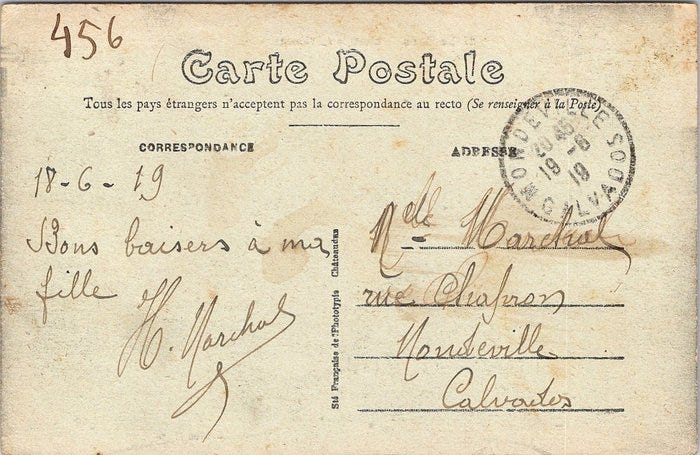 456
Carte Postale
Tous les pays étrangers n'acceptent pas la correspondance au recto (Se renseigner à la Poste)
CORRESPONDANCE
18-6-19
Bons baisers à ma
fille
H. Marchal
Sté Française de Phototypie Châteaudun
ADRESSE
MONDEVILLE CALVADOS
19 -6
19
Melle Marchal
rue Chapron
Mondeville
Calvados